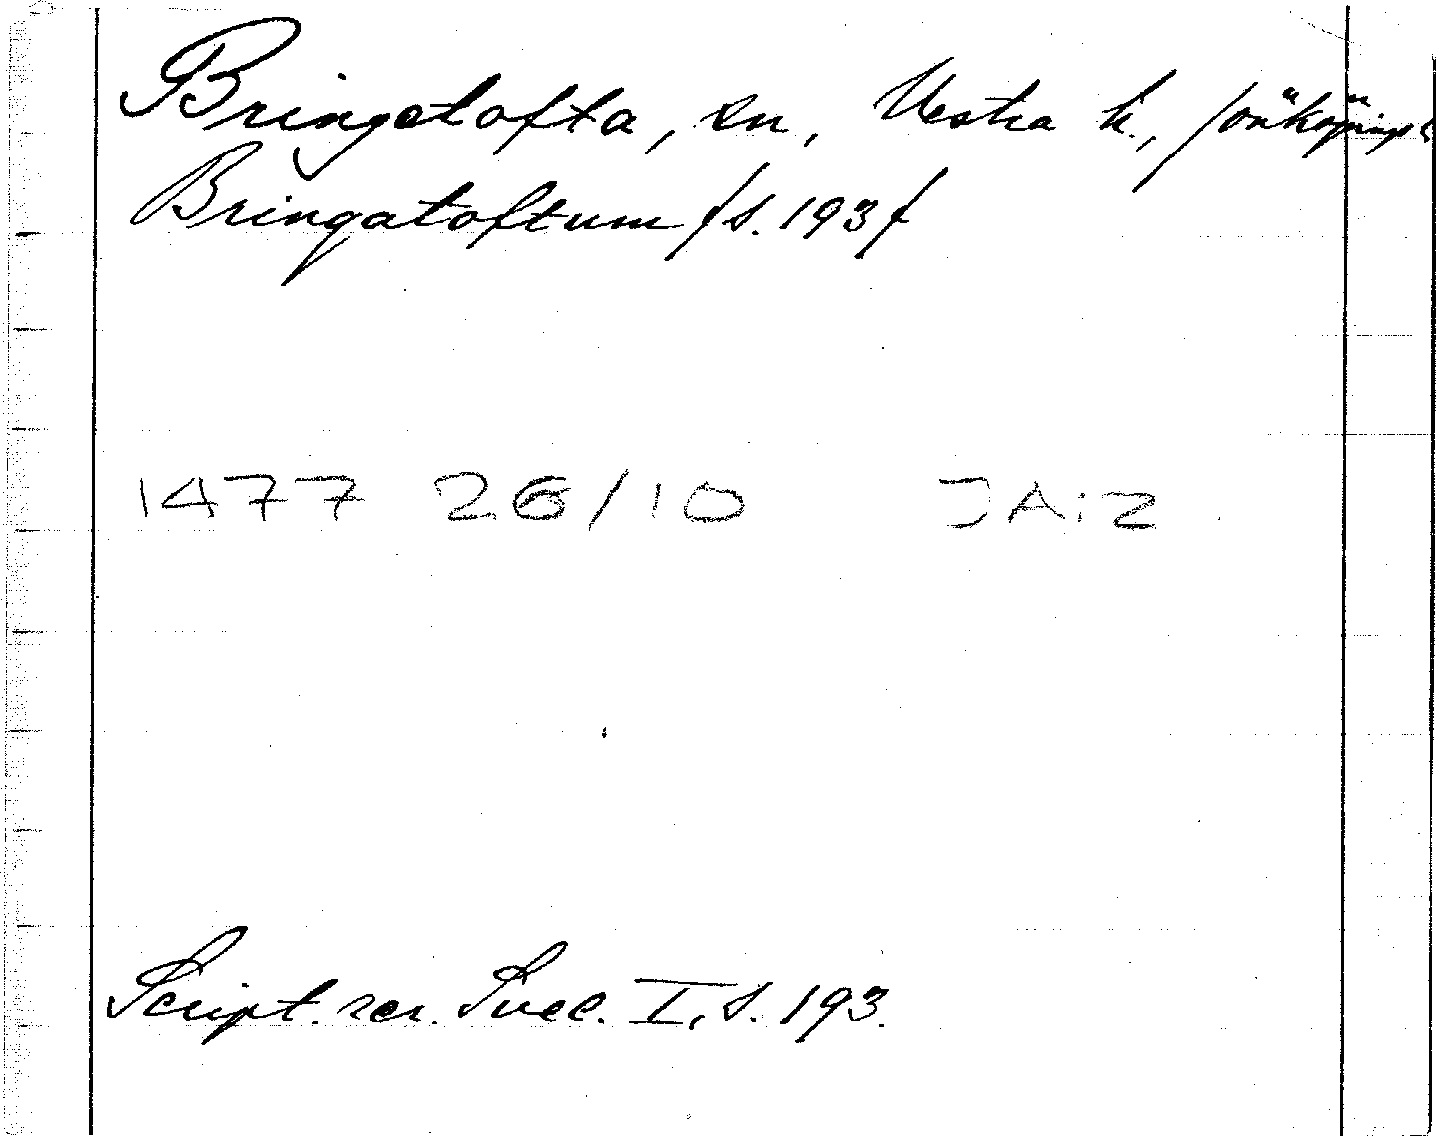 Bringetofta, sn, Vestra h., Jönköpings
Bringatoftum /s. 193/
1477 26/10 JAiZ
Script. rer. Svec. I, s. 193.